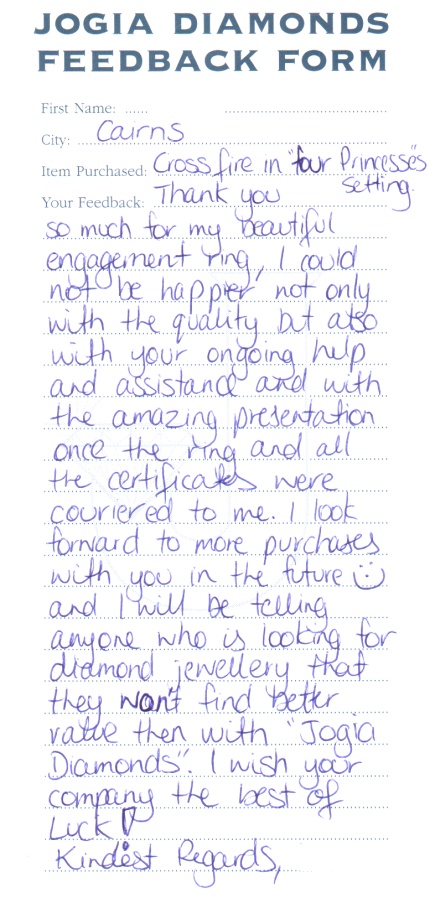 JOGIA DIAMONDS
FEEDBACK FORM
First Name: ......
City: Cairns
Item Purchased: Crossfire in "four Princesses"
Your Feedback: Thank you setting.
so much for my beautiful
engagement ring, I could
not be happier not only
with the quality but also
with your ongoing help
and assistance and with
the amazing presentation
once the ring and all
the certificates were
couriered to me. I look
forward to more purchases
with you in the future ☺
and I will be telling
anyone who is looking for
diamond jewellery that
they won't find better
value then with "Jogia
Diamonds". I wish your
company the best of
Luck!
Kindest Regards,